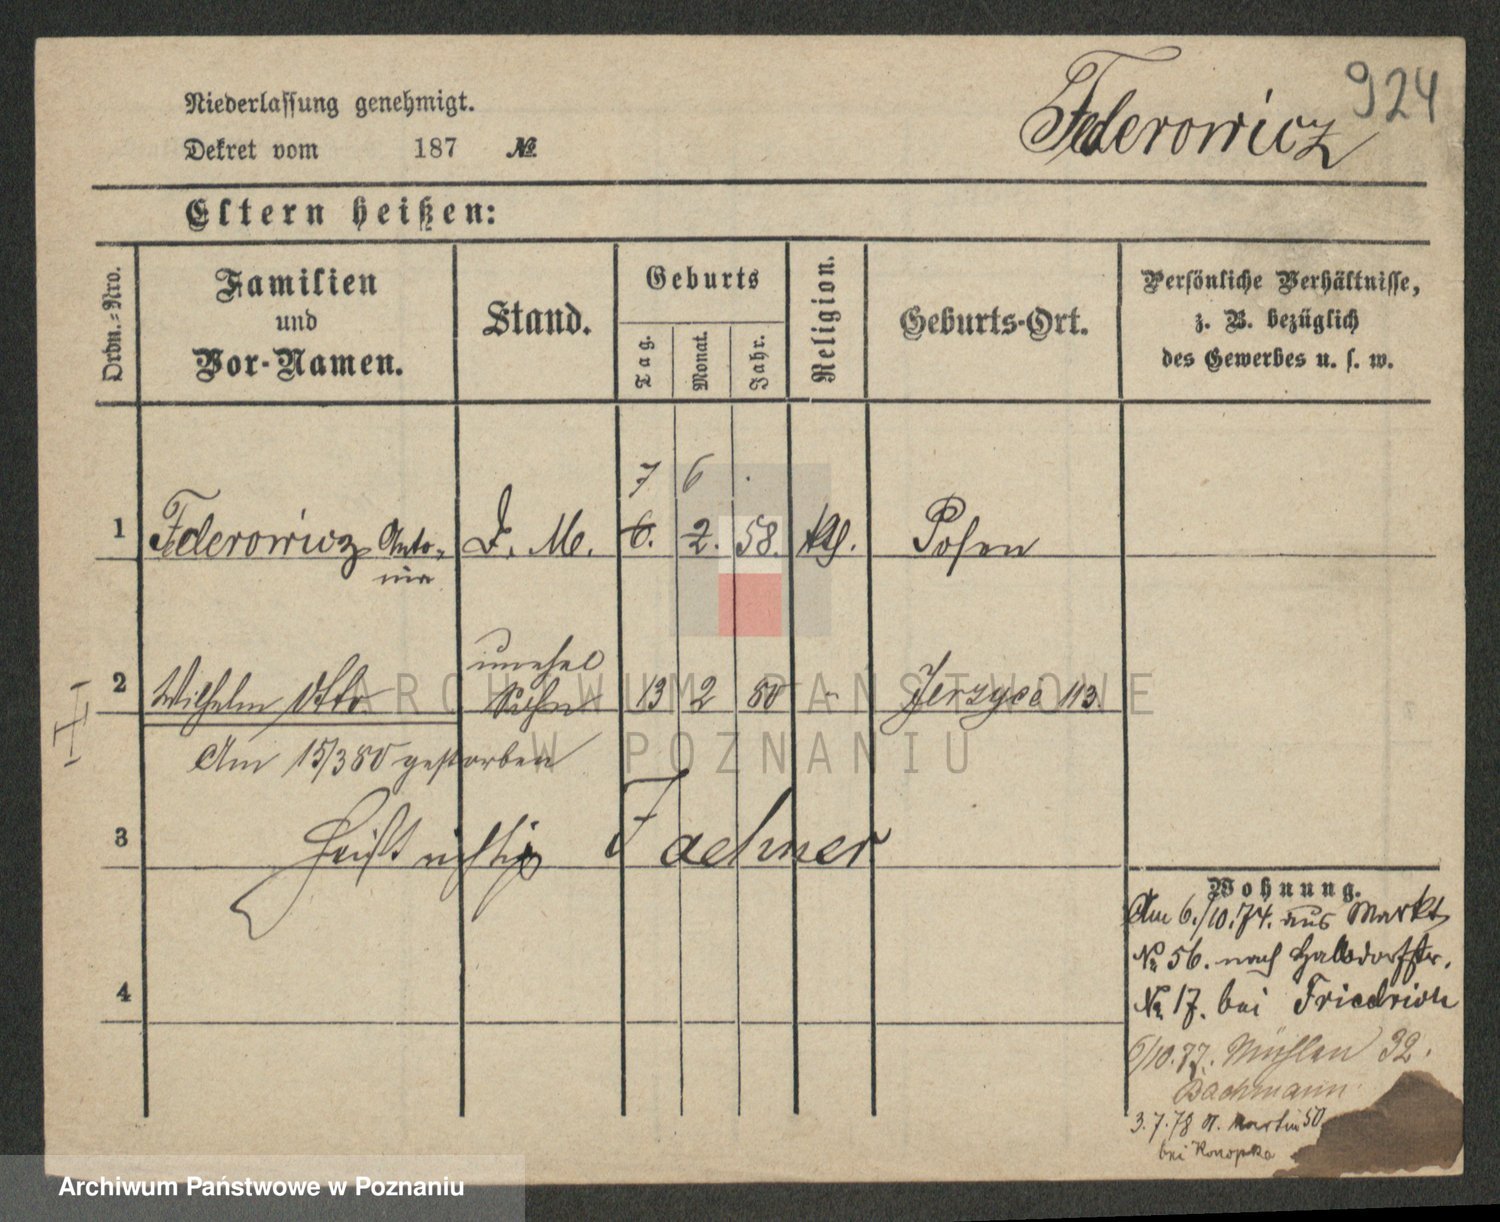 924
Niederlassung genehmigt.
Federowicz
Dekret vom 187 №
Eltern heißen:
Ordn.-Nro.
Familien
und
Vor-Namen.
Stand.
Geburts
Tag.
Monat.
Jahr.
Religion.
Geburts-Ort.
Persönliche Verhältnisse,
z. B. bezüglich
des Gewerbes u. s. w.
7 6
1 Federowicz Anto- D. M. 6. 2. 58. kth. Posen
nia
unehel
2 Wilhelm Otto Sohn 13 2 80 - Jerzyce 113
Am 15/3 80 gestorben
3 heißt richtig Fachner
4
Wohnung.
Am 6./10.74. aus Markt
№ 56. nach Halbdorfstr.
№ 17. bei Friedrich
6/10.77. Mühlen 32.
Bachmann
3.7.78 St. Martin 50
bei Konopka
ARCHIWUM PAŃSTWOWE
W POZNANIU
Archiwum Państwowe w Poznaniu